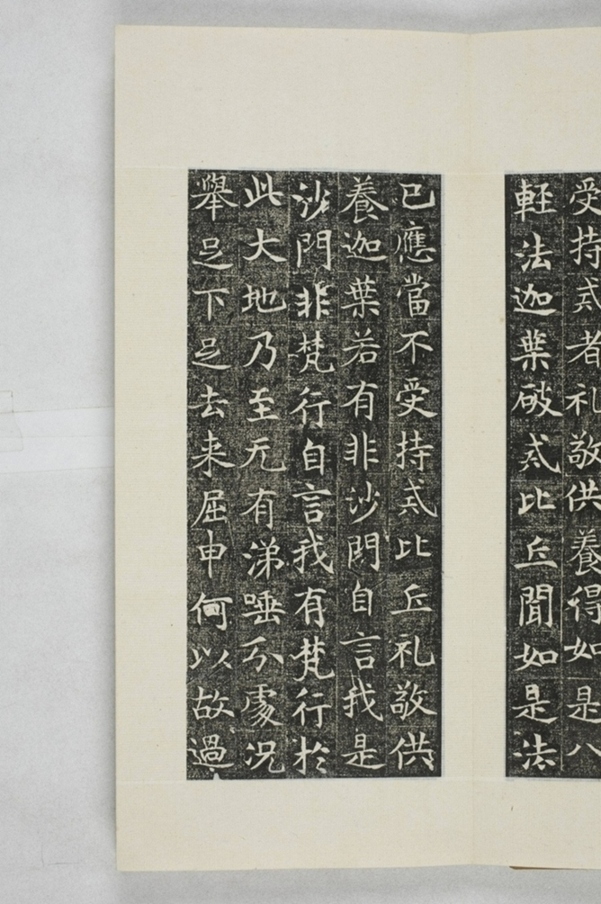 受持戒者礼敬供養得如是八
軽法迦葉破戒比丘聞如是法
已應當不受持戒比丘礼敬供
養迦葉若有非沙門自言我是
沙門非梵行自言我有梵行於
此大地乃至无有涕唾分處況
舉足下足去来屈申何以故過